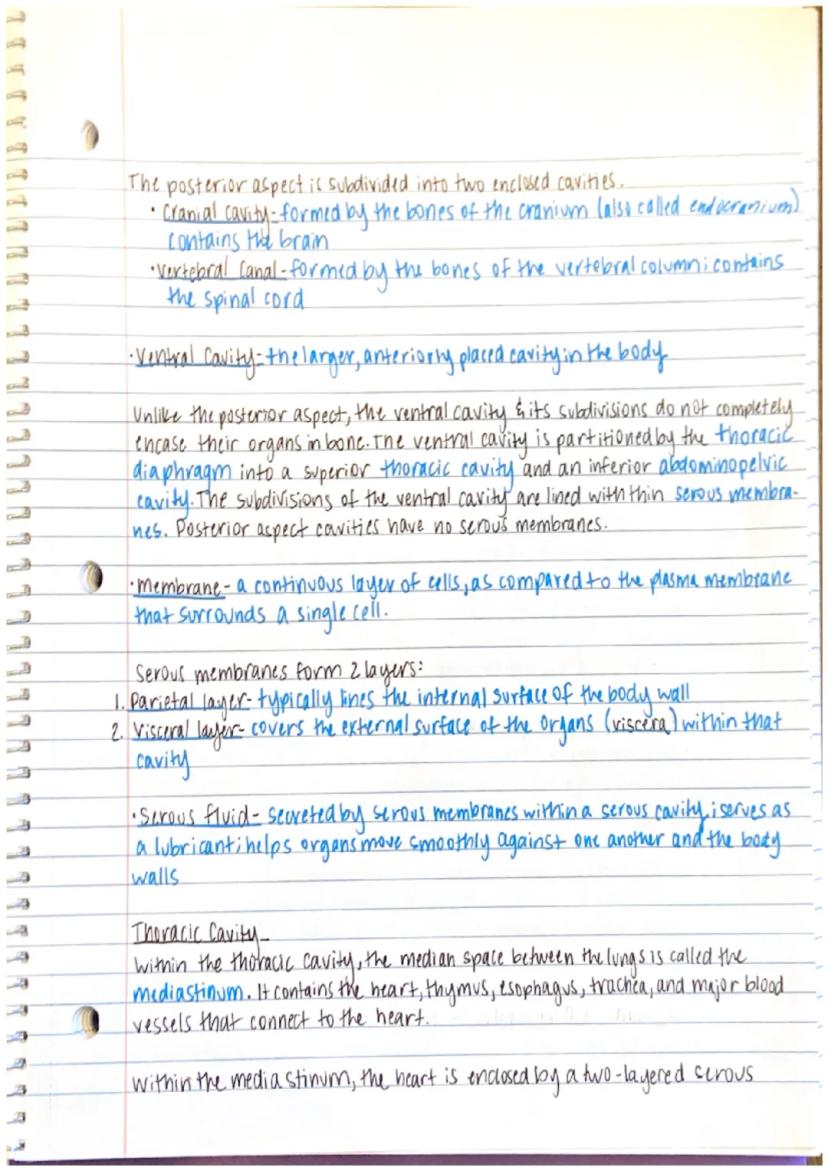 The posterior aspect is subdivided into two enclosed cavities.
• Cranial cavity - formed by the bones of the cranium (also called endocranium)
contains the brain
• Vertebral Canal - formed by the bones of the vertebral column; contains
the spinal cord
• Ventral Cavity - the larger, anteriorly placed cavity in the body
Unlike the posterior aspect, the ventral cavity & its subdivisions do not completely
encase their organs in bone. The ventral cavity is partitioned by the thoracic
diaphragm into a superior thoracic cavity and an inferior abdominopelvic
cavity. The subdivisions of the ventral cavity are lined with thin serous membra-
nes. Posterior aspect cavities have no serous membranes.
• Membrane - a continuous layer of cells, as compared to the plasma membrane
that surrounds a single cell.
Serous membranes form 2 layers:
1. Parietal layer - typically lines the internal surface of the body wall
2. Visceral layer - covers the external surface of the organs (viscera) within that
cavity
• Serous fluid - secreted by serous membranes within a serous cavity; serves as
a lubricant; helps organs move smoothly against one another and the body
walls
Thoracic Cavity -
Within the thoracic cavity, the median space between the lungs is called the
mediastinum. It contains the heart, thymus, esophagus, trachea, and major blood
vessels that connect to the heart.
Within the mediastinum, the heart is enclosed by a two-layered serous